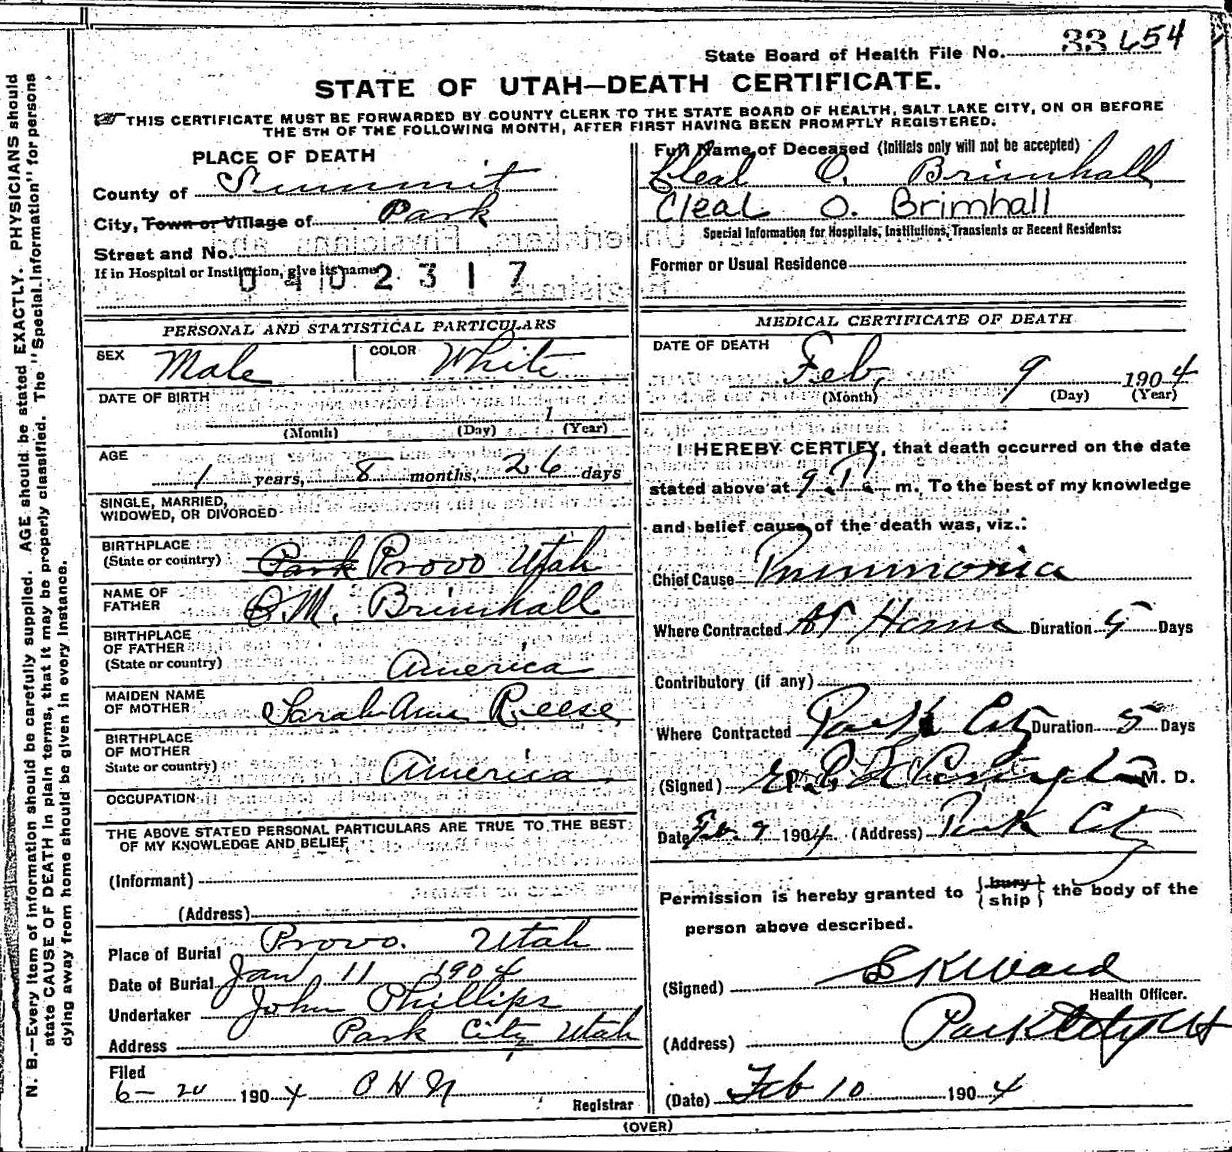 State Board of Health File No. 33654
STATE OF UTAH—DEATH CERTIFICATE.
THIS CERTIFICATE MUST BE FORWARDED BY COUNTY CLERK TO THE STATE BOARD OF HEALTH, SALT LAKE CITY, ON OR BEFORE
THE 5TH OF THE FOLLOWING MONTH, AFTER FIRST HAVING BEEN PROMPTLY REGISTERED.
PLACE OF DEATH
County of Summit
City, Town or Village of Park
Street and No.
If in Hospital or Institution, give its name
0402317
PERSONAL AND STATISTICAL PARTICULARS
SEX Male COLOR White
DATE OF BIRTH
1
(Month) (Day) (Year)
AGE
1 years, 8 months, 26 days
SINGLE, MARRIED,
WIDOWED, OR DIVORCED
BIRTHPLACE
(State or country) Park Provo Utah
NAME OF
FATHER C.M. Brimhall
BIRTHPLACE
OF FATHER
(State or country) America
MAIDEN NAME
OF MOTHER Sarah Ann Reese
BIRTHPLACE
OF MOTHER
State or country) America
OCCUPATION
THE ABOVE STATED PERSONAL PARTICULARS ARE TRUE TO THE BEST
OF MY KNOWLEDGE AND BELIEF,
(Informant)
(Address)
Place of Burial Provo. Utah
Date of Burial Jan 11 1904
Undertaker John Phillips
Address Park City Utah
Filed
6-20 1904 O H N
Registrar
Full Name of Deceased (Initials only will not be accepted)
Cleal O. Brimhall
Cleal O. Brimhall
Special Information for Hospitals, Institutions, Transients or Recent Residents:
Former or Usual Residence
MEDICAL CERTIFICATE OF DEATH
DATE OF DEATH
Feb, 9 1904
(Month) (Day) (Year)
I HEREBY CERTIFY, that death occurred on the date
stated above at 9 P. m. To the best of my knowledge
and belief cause of the death was, viz.:
Chief Cause Pnumonia
Where Contracted At Home Duration 5 Days
Contributory (if any)
Where Contracted Park City Duration 5 Days
(Signed) M. D.
Date Feb. 9 1904 (Address) Park City
Permission is hereby granted to {bury
ship} the body of the
person above described.
(Signed) E K Ward
Health Officer.
(Address) Park City Ut
(Date) Feb 10 1904
(OVER)
N. B.—Every item of information should be carefully supplied. AGE should be stated EXACTLY. PHYSICIANS should
state CAUSE OF DEATH in plain terms, that it may be properly classified. The "Special Information" for persons
dying away from home should be given in every instance.